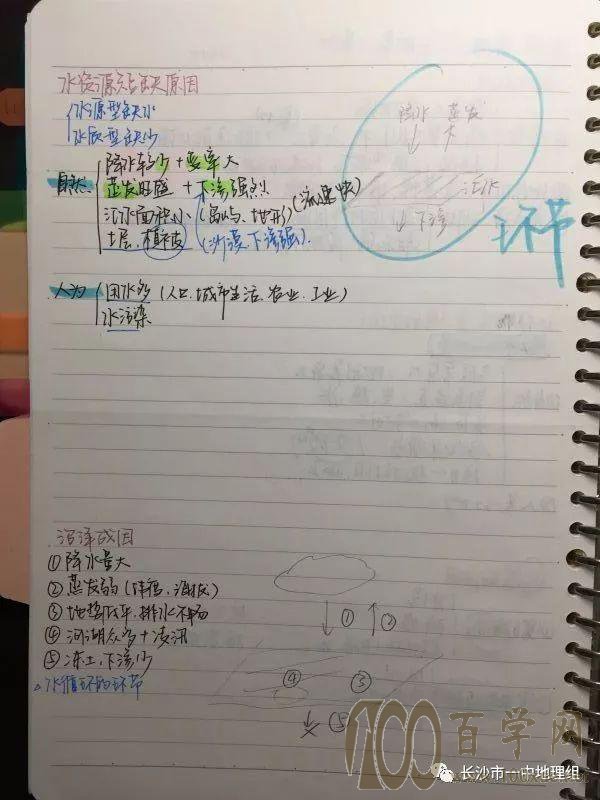 水资源短缺原因
水源型缺水
水质型缺少
降水 蒸发
自然
降水较少+变率大
蒸发旺盛+下渗强烈
汇水面积小(岛屿、地形)(流速快)
土层、植被
(沙漠下渗强)
汇水
下渗
环节
人为
用水多(人口、城市生活、农业、工业)
水污染
沼泽成因
①降水量大
②蒸发弱(纬度、海拔)
③地势低平,排水不畅
④河湖众多+凌汛
⑤冻土,下渗少
△水循环的环节
① ②
④ ③
⑤
100百学网
长沙市一中地理组